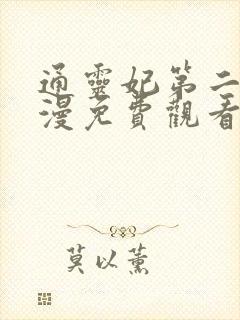 通靈妃第二
漫免費觀看
莫以薰